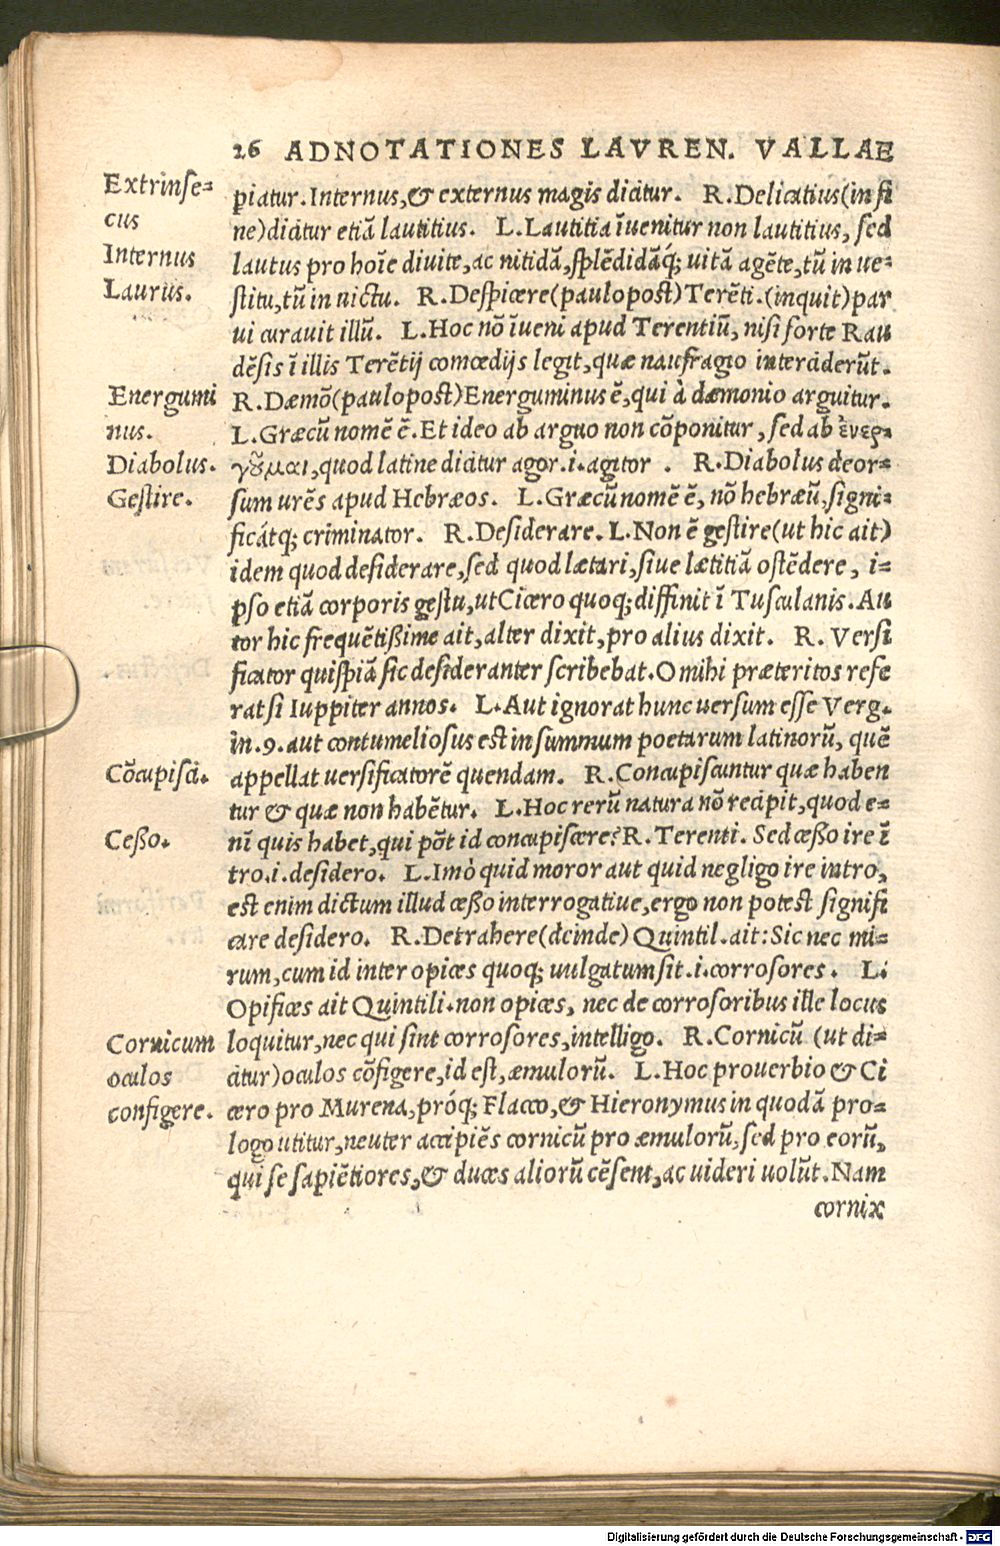 26 ADNOTATIONES LAVREN. VALLAE
Extrinse=
cus
Internus
Laurus.
Energumi
nus.
Diabolus.
Gestire.
Cõcupisci.
Ceßo.
Cornicum
oculos
configere.
piatur. Internus, & externus magis dicitur. R. Delicatius (in fi
ne) dicitur etiã lautitius. L. Lautitia ĩuenitur non lautitius, sed
lautus pro hoĩe diuite, ac nitidã, splẽdidãq́; uitã agẽte, tũ in ue=
stitu, tũ in uictu. R. Despicere (paulo post) Terẽti. (inquit) par
ui curauit illũ. L. Hoc nõ ĩueni apud Terentiũ, nisi forte Rau
dẽsis ĩ illis Terẽtij comœdijs legit, quæ naufragio interciderũt.
R. Dæmõ (paulo post) Energuminus ẽ, qui à dæmonio arguitur.
L. Græcũ nomẽ ẽ. Et ideo ab arguo non cõponitur, sed ab ἐνερ=
γȣ̃μαι, quod latine dicitur agor .i. agitor . R. Diabolus deor=
sum urẽs apud Hebræos. L. Græcũ nomẽ ẽ, nõ hebræũ, signi=
ficátq; criminator. R. Desiderare. L. Non ẽ gestire (ut hic ait)
idem quod desiderare, sed quod lætari, siue lætitiã ostẽdere, i=
pso etiã corporis gestu, ut Cicero quoq; diffinit ĩ Tusculanis. Au
tor hic frequẽtißime ait, alter dixit, pro alius dixit. R. Versi
ficator quispiã sic desideranter scribebat. O mihi præteritos refe
rat si Iuppiter annos. L. Aut ignorat hunc uersum esse Verg.
in .9. aut contumeliosus est in summum poetarum latinorũ, quẽ
appellat uersificatorẽ quendam. R. Concupiscuntur quæ haben
tur & quæ non habẽtur. L. Hoc rerũ natura nõ recipit, quod e=
nĩ quis habet, qui põt id concupiscere? R. Terenti. Sed ceßo ire ĩ
tro .i. desidero. L. Imò quid moror aut quid negligo ire intro,
est enim dictum illud ceßo interrogatiue, ergo non potest signifi
care desidero. R. Detrahere (deinde) Quintil. ait: Sic nec mi=
rum, cum id inter opices quoq; uulgatum sit .i. corrosores. L.
Opifices ait Quintili. non opices, nec de corrosoribus ille locus
loquitur, nec qui sint corrosores, intelligo. R. Cornicũ (ut di=
citur) oculos cõfigere, id est, æmulorũ. L. Hoc prouerbio & Ci
cero pro Murena, próq; Flacco, & Hieronymus in quodã pro=
logo utitur, neuter accipiẽs cornicũ pro æmulorũ, sed pro eorũ,
qui se sapiẽtiores, & duces aliorũ cẽsent, ac uideri uolũt. Nam
cornix
Digitalisierung gefördert durch die Deutsche Forschungsgemeinschaft - DFG